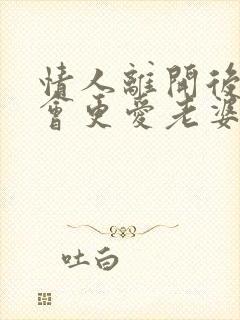 情人離開後
會更愛老婆
吐白